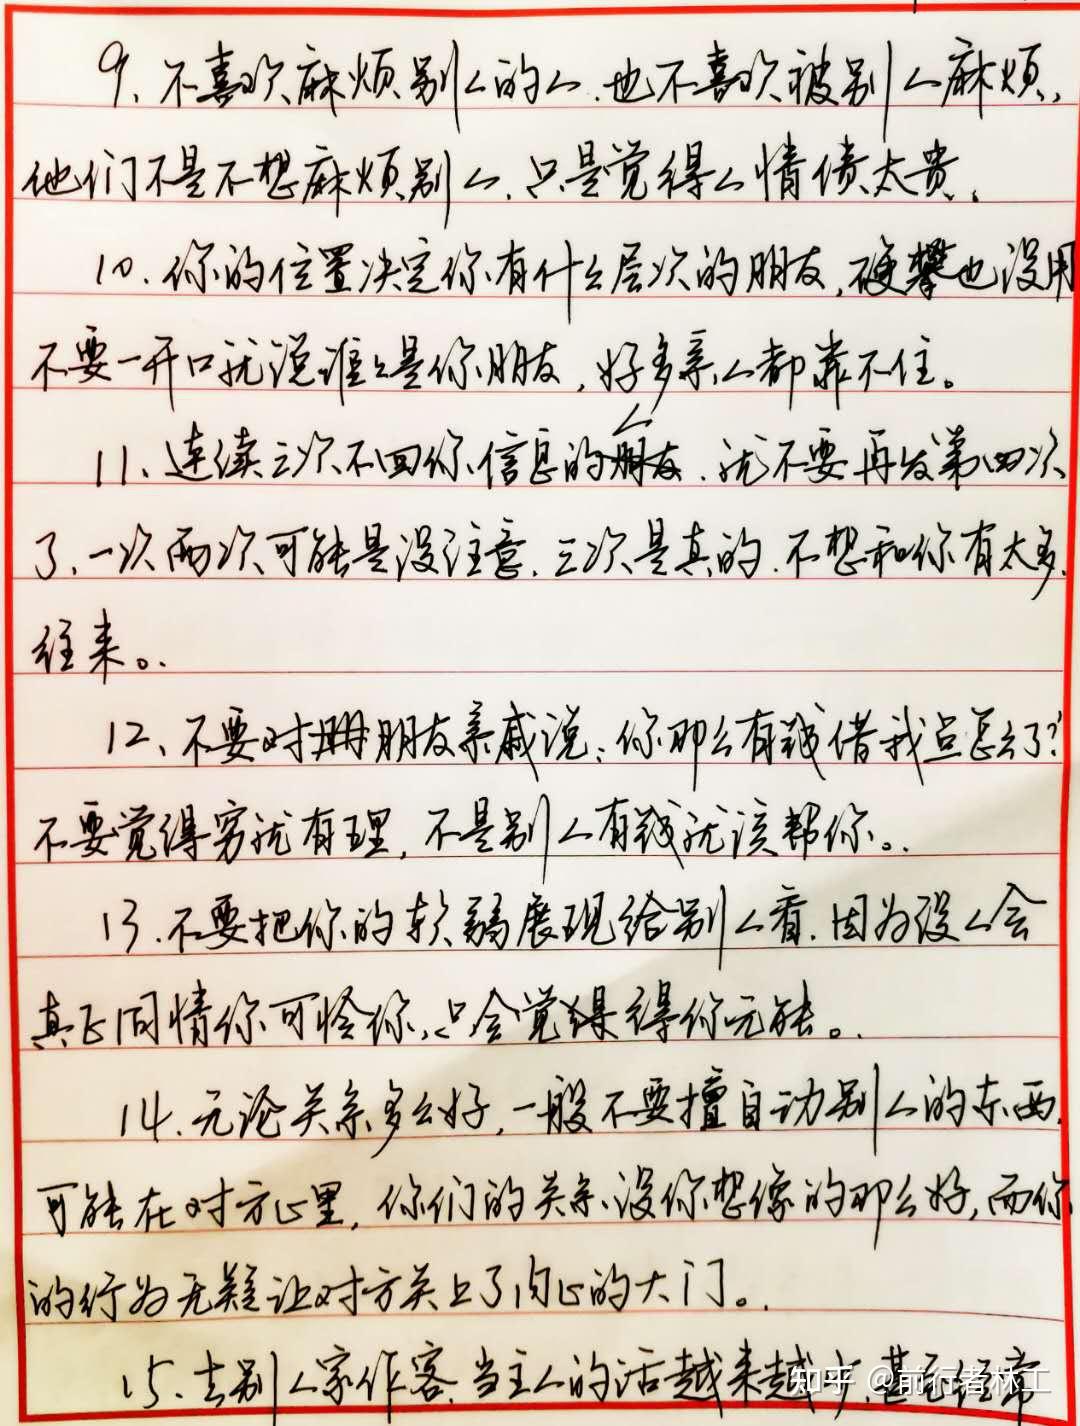 9、不喜欢麻烦别人的人、也不喜欢被别人麻烦,
他们不是不想麻烦别人、只是觉得人情债太贵。
10、你的位置决定你有什么层次的朋友,硬攀也没用
不要一开口就说谁谁是你朋友,好多亲人都靠不住。
11、连续三次不回你信息的人、就不要再发第四次
了、一次两次可能是没注意、三次是真的、不想和你有太多
往来。
12、不要对朋友亲戚说:你那么有钱借我点怎么了?
不要觉得穷就有理,不是别人有钱就该帮你。
13、不要把你的软弱展现给别人看、因为没人会
真正同情你可怜你、只会觉得你无能。
14、无论关系多么好,一般不要擅自动别人的东西、
可能在对方心里,你们的关系没你想像的那么好,而你
的行为无疑让对方关上了内心的大门。
15、去别人家作客、当主人的话越来越少、甚至经常
知乎 @前行者林工